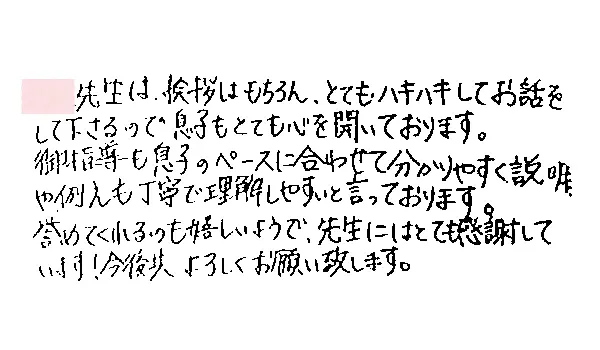 先生は、挨拶はもちろん、とてもハキハキしてお話を
して下さるので息子もとても心を開いております。
御指導も息子のペースに合わせて分かりやすく説明
や例えも丁寧で理解しやすいと言っております。
誉めてくれるのも嬉しいようで、先生にはとても感謝して
います!今後共よろしくお願い致します。